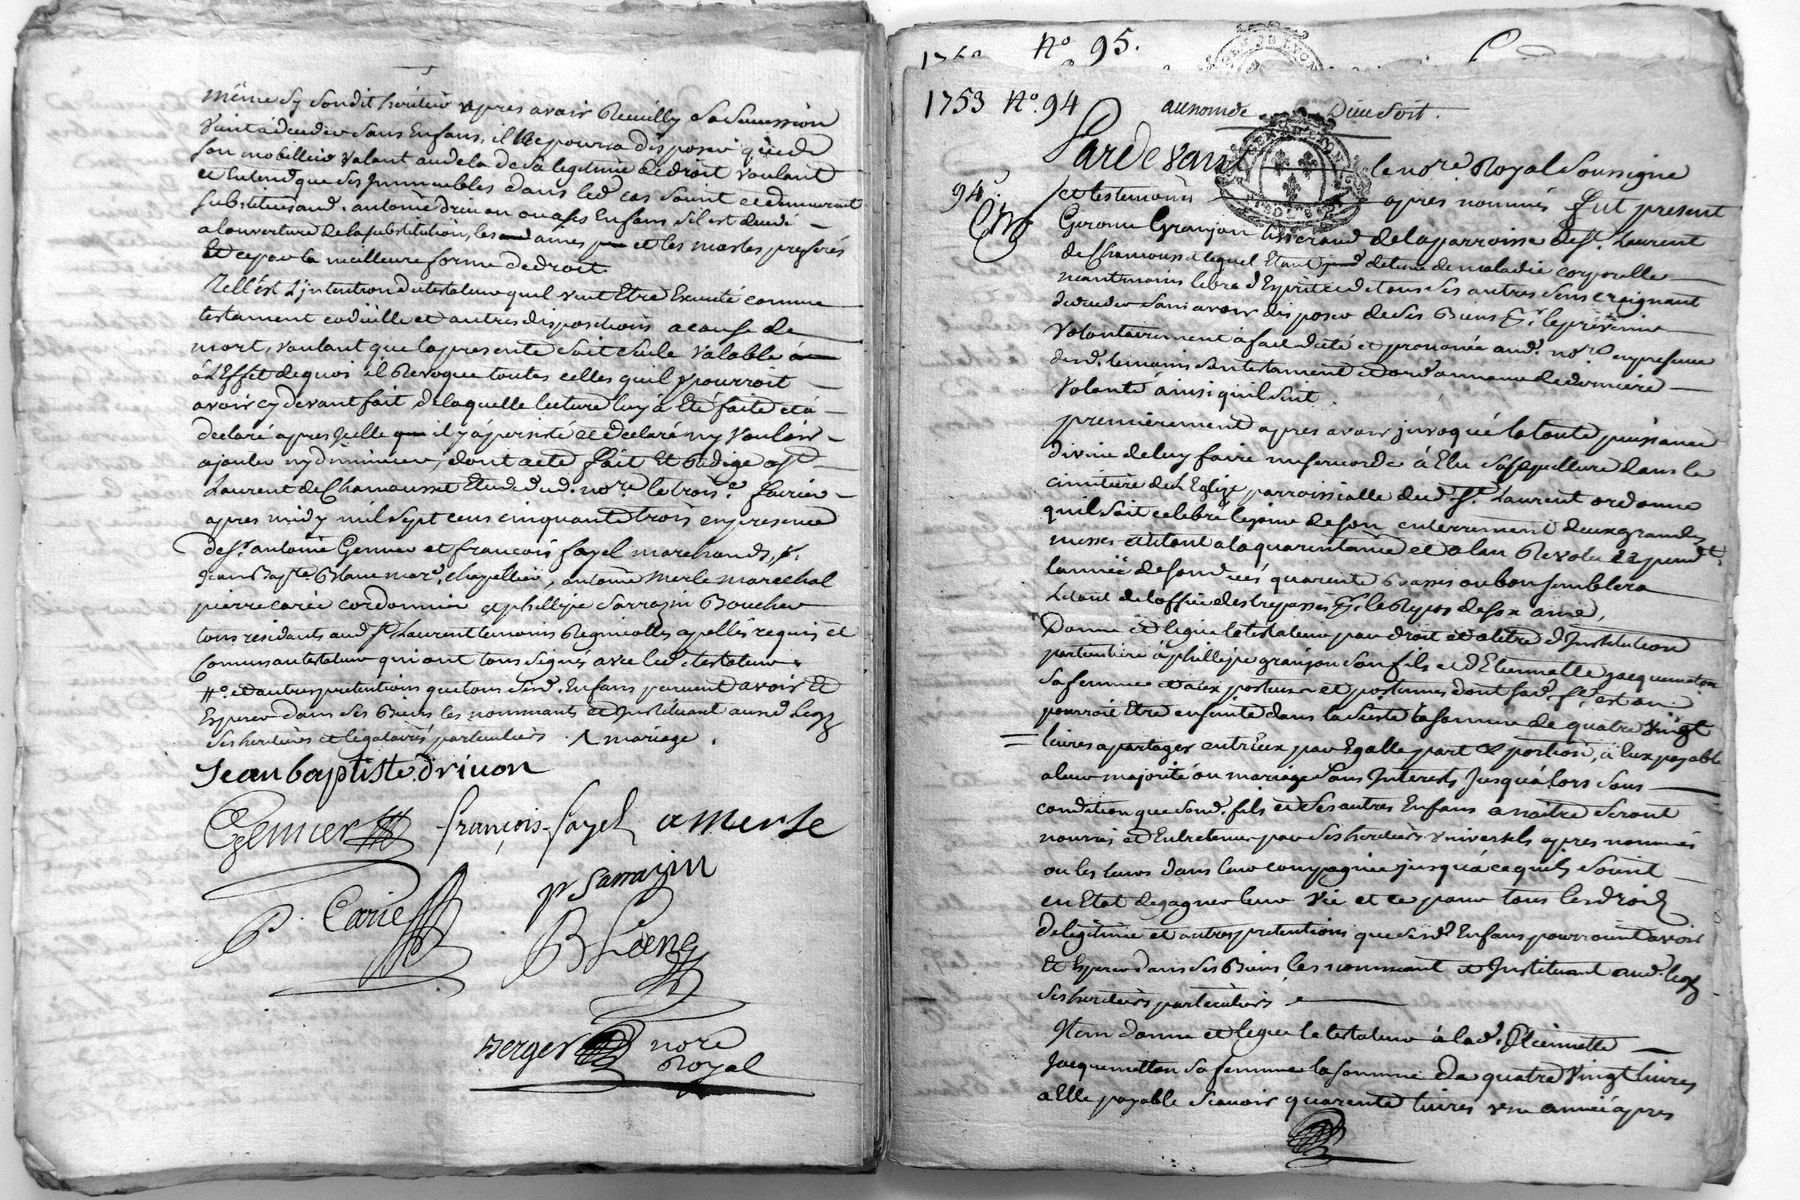 même sy sondit héritier apres avoir Recuilly sa succession
vint à deceder sans Enfans, il ne pourra disposer que de
son mobillier valant au dela de sa legitime de droit voulant
et Entend que ses Immeubles dans led. cas soint et demeurent
substitués aud. antoine drivon ou a ses Enfans s'il est decedé
a louverture de la substitution, les ainés et les masles preferés
Et ce par la meilleure forme de droit.
Telle est L'intention du testateur quil veut Etre Executé comme
testament codicille et autres dispositions a cause de
mort, voulant que la presente soit seule valable
à L'Effet de quoi il Revoque toutes celles quil pourroit
avoir cy devant fait, de laquelle lecture luy à Eté faite et à
declaré apres icelle il y à persisté et declaré n'y vouloir
ajouter ny diminuer, dont acte fait Et Redigé a St.
Laurent de Chamousset Etude dud. nore. le trois.e fevrier
apres midy mil sept cens cinquante trois en presence
de sr. antoine Gennier et francois fayel marchands,
Jean Bapte. Blanc mard. chapellier, antoine Merle marechal
pierre carie cordonnier et phillipe Sarrazin Boucher
tous residants aud. St. Laurent temoins Regnicolles apellés requis et
Connus au testateur qui ont tous signés avec led. testateur.
et autres pretentions que tous sesd. Enfans peuvent avoir Et
Esperer dans ses Biens les nommants et Instituant ausd. Legs
ses heritiers et legataires particuliers. mariage.
Jean baptiste drivon
Gennier françois fayel a Merle
P. Carie pr Sarrazin
B Blanc
Berger nore
Royal
1753 No. 95.
1753 No. 94 au nom de Dieu soit.
Pardevant le nore. Royal soussigné
94. et les temoins apres nommés fut present
Gerome Granjon tisserand de la parroisse de St. Laurent
de Chamousset lequel Etant detenu de maladie corporelle
neantmoins libre d'Esprit et de tous ses autres sens craignant
deceder sans avoir disposer de ses Biens pr. le prevenir
volontairement à fait dicté et prononcé aud. nore. en presence
desd. temoins son testament et ordonnance de derniere
volonté ainsi quil suit.
premierement apres avoir invoqué la toute puissance
divine de luy faire misericorde à Elu sa sepullture dans le
cimitiere de L'Eglize parroissialle dud. St. Laurent ordonne
quil soit celebré le jour de son enterrement deux grandes
messes et tout a la quarantaine et a lan Revolu et pendt.
lannée de sond. deces quarente Basses ou bon semblera
Le tout de loffice des trepassés pr. le Repos de son ame,
Donne et legue le testateur par droit et a titre d'Institution
particuliere à phillipe granjon son fils et d'Etiennette Jacquemetton
sa femme et aux posthumes dont sad. fe. est ou
pourroit Etre enseinte dans la suite la somme de quatre vingt
livres a partager entr'eux par Egalle part et portion, a Eux payable
a leur majorité ou mariage sans Interets jusqu'alors sous
condition que sond. fils et ses autres Enfans a naitre seront
nourris et Entretenus par ses heritiers universels apres nommés
ou les leurs dans leur compagnie jusqu'à ce quils soint
en Etat de gagner leur vie et ce pour tous les droits
de legitime et autres pretentions que sesd. Enfans pourroint avoir
Et Esperer dans ses Biens, les nommant et Instituant aud. legs
ses heritiers particuliers
Item donne et legue le testateur à lad. Etiennette
Jacquemetton sa femme la somme de quatre vingt livres
a Elle payable scavoir quarente livres une année apres